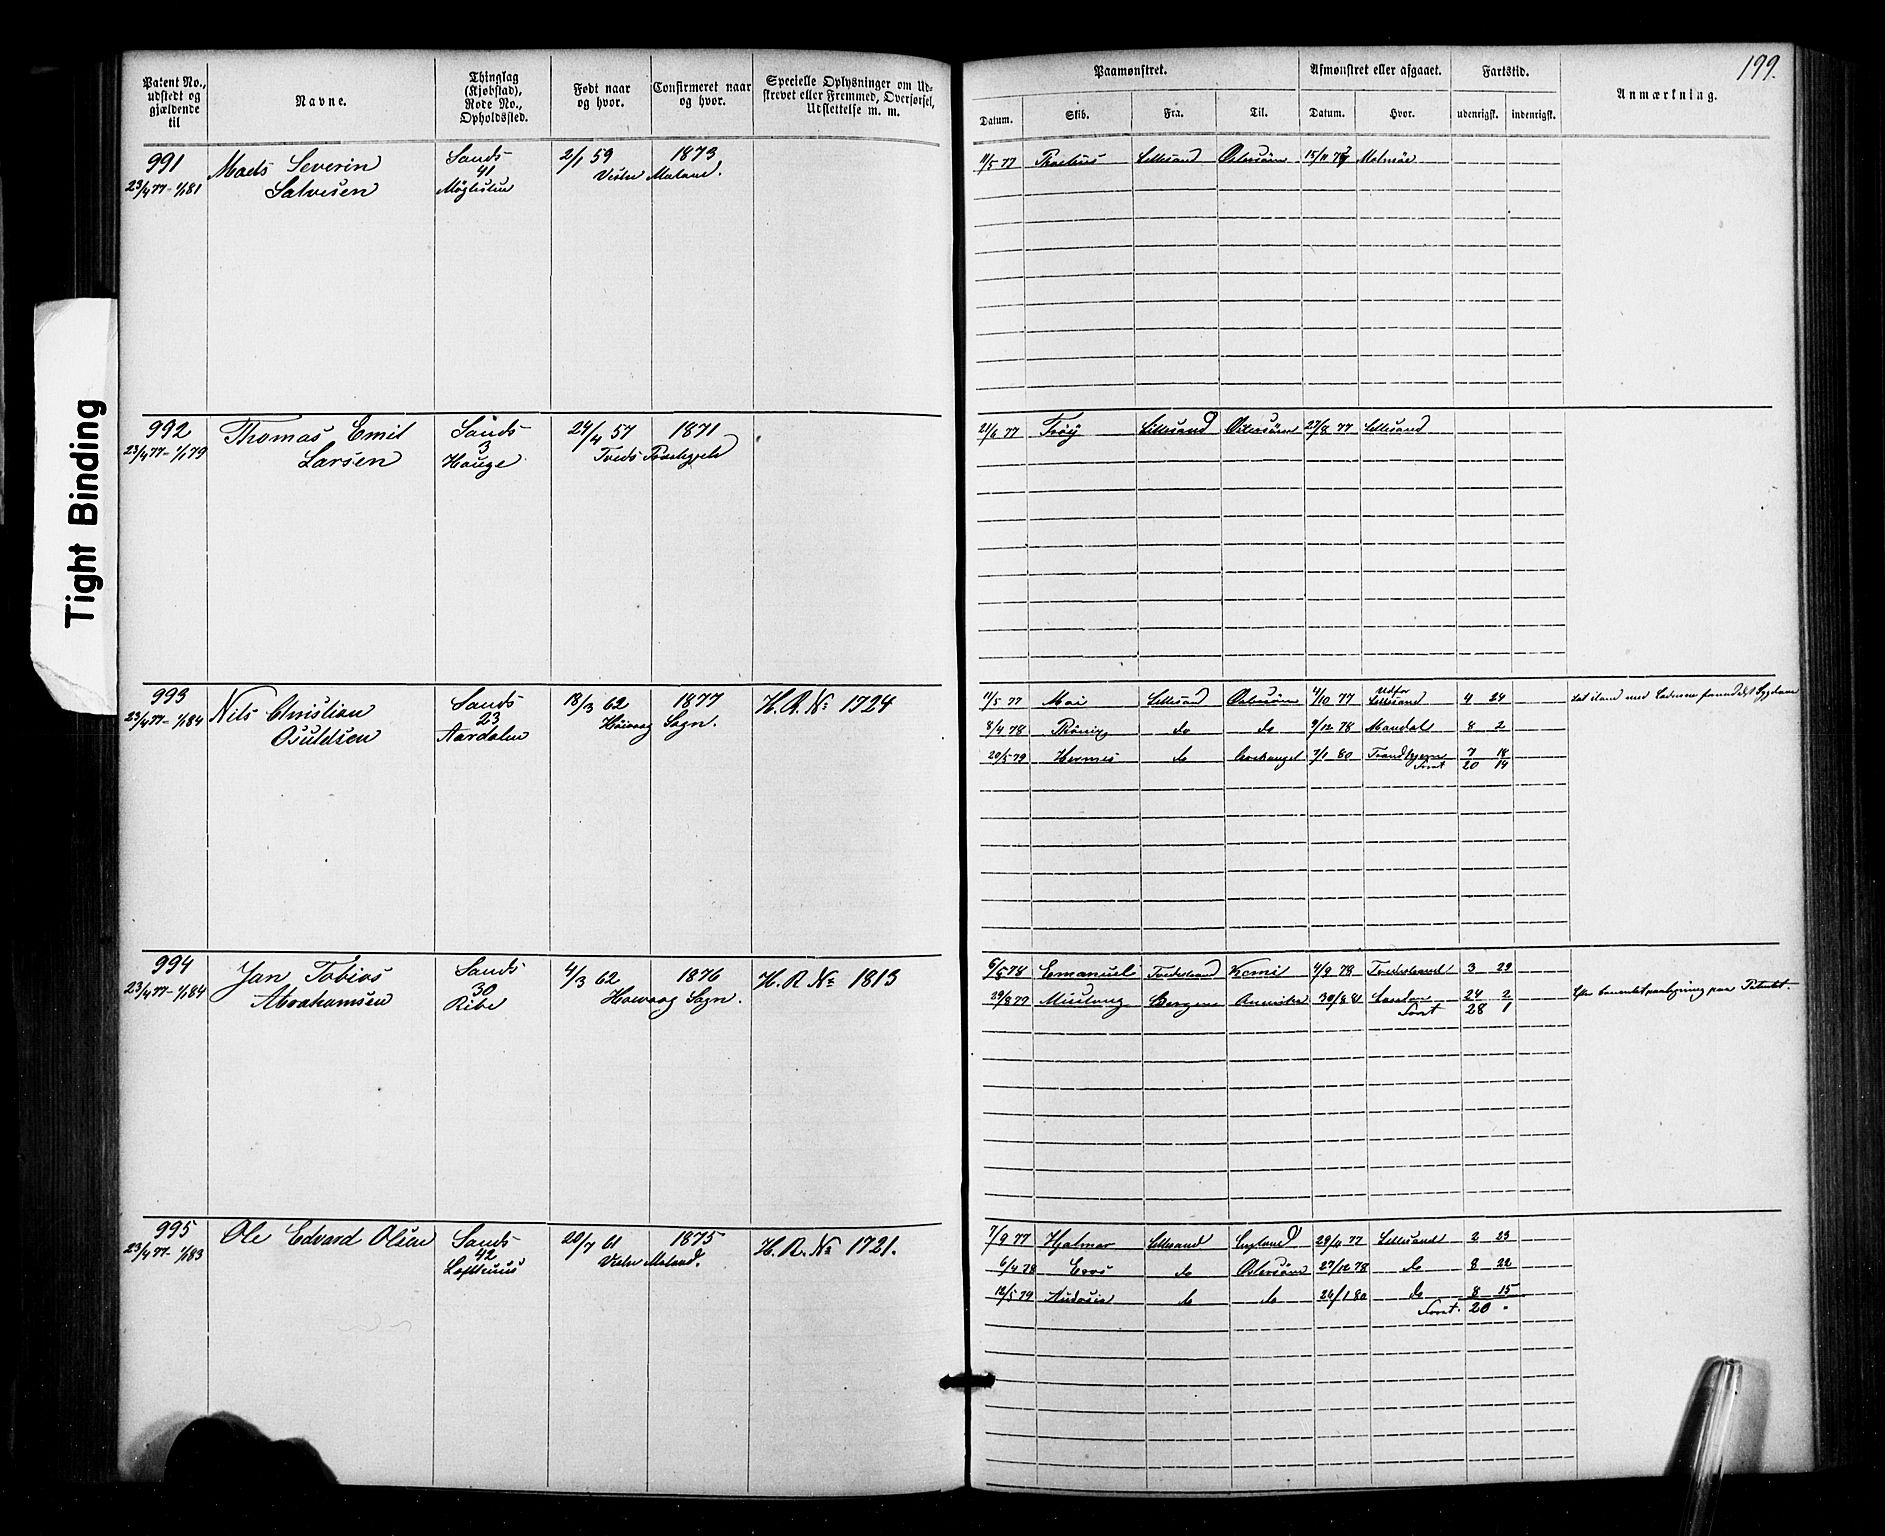 Tight Binding
Patent No., udstedt og gjældende til
Navne.
Thinglag (Kjøbstad), Rode No., Opholdssted.
Født naar og hvor.
Confirmeret naar og hvor.
Specielle Oplysninger om Udskrevet eller Fremmed, Overførsel, Udslettelse m. m.
Paamønstret.
Afmønstret eller afgaaet.
Fartstid.
Anmærkning.
199.
Datum.
Skib.
Fra.
Til.
Datum.
Hvor.
udenrigsk.
indenrigsk.
991 Mads Severin Sands 2/1 59 1873
23/4 77 - 1/1 81 Salvesen 41 Vestre Moland.
11/5 77 Lillesand Østersøen 15/11 77 Malmøe
992 Thomas Emil Sands 24/4 57 1871
23/4 77 - 1/1 79 Larsen 3 Hauge Tveds
21/6 77 Trøy Lillesand Østersøen 27/8 77 Lillesand
993 Nils Christian Sands 18/3 62 1877 H. R. No 1724
23/4 77 - 1/1 84 Osuldsen 23 Aardalen Høivaag Sogn.
11/5 77 Lillesand Østersøen 4/10 77 Udfor Lillesand 4 24
8/4 78 do do 9/12 78 Mandal 8 2
20/5 79 Hermes do Archangel 7/1 80 7 18
20 14
994 Jan Tobias Sands 4/3 62 1876 H. R. No 1813
23/4 77 - 1/1 84 Abrahamsen 30 Ribe Høivaag Sogn.
6/5 78 Emanuel Kemi 4/9 78 3 29
29/8 77 Bergen 30/8 81 24 2
28 1
995 Ole Edvard Olsen Sands 20/7 61 1875 H. R. No 1721.
23/4 77 - 1/1 83 42 Vestre Moland.
7/9 77 Hjalmar Lillesand England 29/4 77 Lillesand 2 23
6/4 78 Eros do Østersøen 27/12 78 do 8 22
12/5 79 do do 26/1 80 do 8 15
20 .